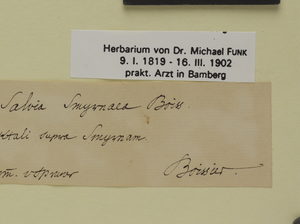 Herbarium von Dr. Michael FUNK
9. I. 1819 - 16. III. 1902
prakt. Arzt in Bamberg
Salvia Smyrnaea Boiss.
supra Smyrnam.
Boissier.